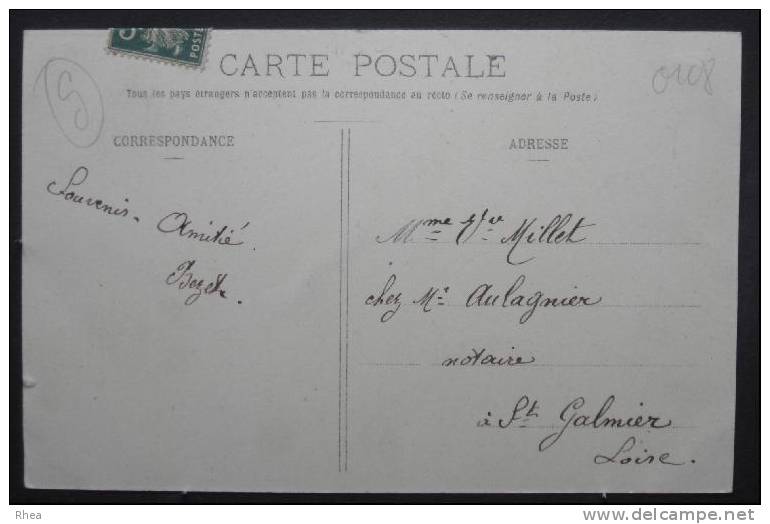 5
POSTE
CARTE POSTALE
Tous les pays étrangers n'acceptent pas la correspondance au recto (Se renseigner à la Poste)
CORRESPONDANCE
Souvenir. Amitié.
ADRESSE
Mme Vve Millet
chez Mr Aulagnier
notaire
à St Galmier
Loire.
Rhea
www.delcampe.net